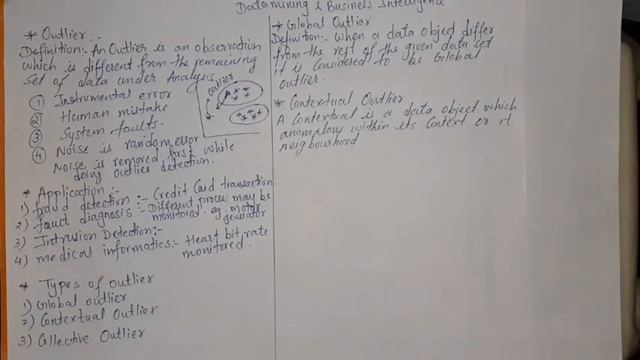 Datamining & Business Intelligence
* Outlier :-
Definition:- An Outlier is an observation
which is different from the remaining
set of data under Analysis.
① Instrumental error
② Human mistake
③ System faults.
④ Noise is random error
Noise is removed first while
doing outlier detection.
outlier
* Application :-
1) fraud detection :- Credit Card transaction.
2) fault diagnosis :- Different process may be
monitored. eg. motor,
generator
3) Intrusion Detection :-
4) medical informatics:- Heart bit rate
monitored.
* Types of outlier
1) Global outlier
2) Contextual Outlier
3) Collective Outlier
* Global Outlier
Definition:- When a data object differ
from the rest of the given data set
it is considered to be Global
outlier.
* Contextual Outlier
A Contextual is a data object which
anomalous within its context or it
neigbourhood.